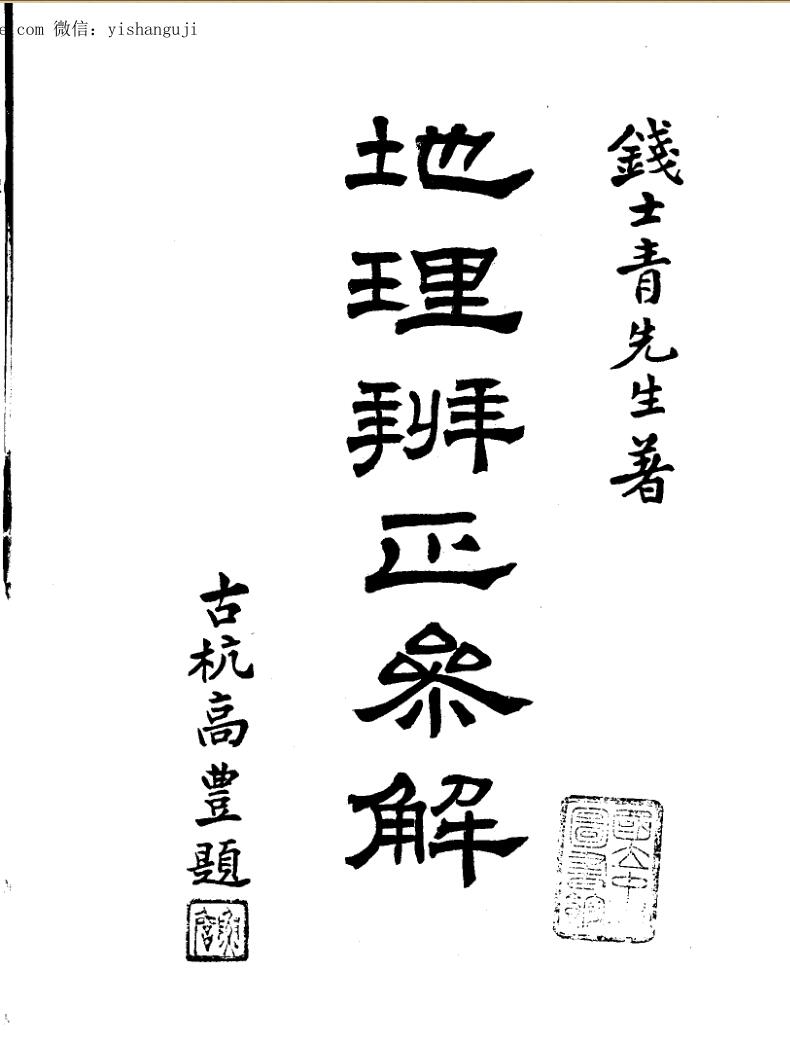 e.com 微信：yishanguji
錢士青先生著
地理辨正參解
古杭高豐題